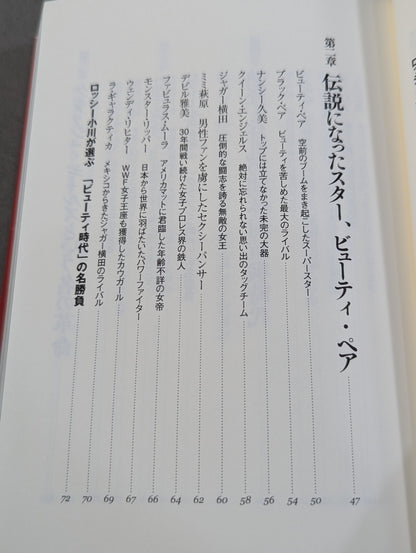 第二章 伝説になったスター、ビューティ・ペア 47
ビューティ・ペア 空前のブームをまき起こしたスーパースター 50
ブラック・ペア ビューティを苦しめた最大のライバル 54
ナンシー久美 トップには立てなかった未完の大器 56
クイーン・エンジェルス 絶対に忘れられない思い出のタッグチーム 58
ジャガー横田 圧倒的な闘志を誇る無敵の女王 60
ミミ萩原 男性ファンを虜にしたセクシーパンサー 62
デビル雅美 30年間戦い続けた女子プロレス界の鉄人 64
ファビュラス・ムーラ アメリカマットに君臨した年齢不詳の女帝 66
モンスター・リッパー 日本から世界に羽ばたいたパワーファイター 67
ウェンディ・リヒター WWF女子王座も獲得したカウガール 69
ラ・ギャラクティカ メキシコからきたジャガー横田のライバル 70
ロッシー小川が選ぶ 「ビューティ時代」の名勝負 72